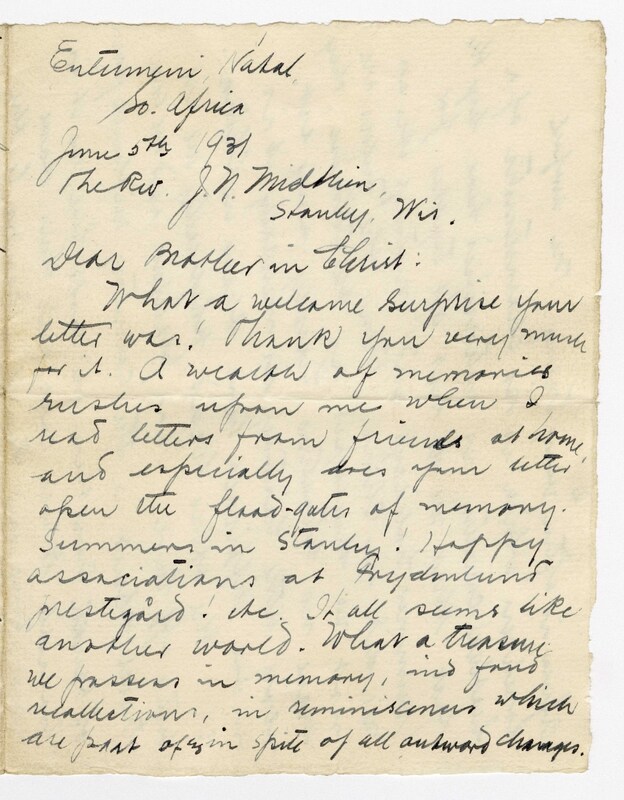 Entumeni, Natal,
So. Africa
June 5th 1931
The Rev. J. N. Midtlien,
Stanley, Wis.
Dear Brother in Christ:
What a welcome surprise your
letter was! Thank you very much
for it. A wealth of memories
rushes upon me when I
read letters from friends at home,
and especially does your letter
open the flood-gates of memory.
Summers in Stanley! Happy
associations at Frydenlund
prestegård! etc. It all seems like
another world. What a treasure
we possess in memory, in fond
recollections, in reminiscences which
are part of us in spite of all outward changes.